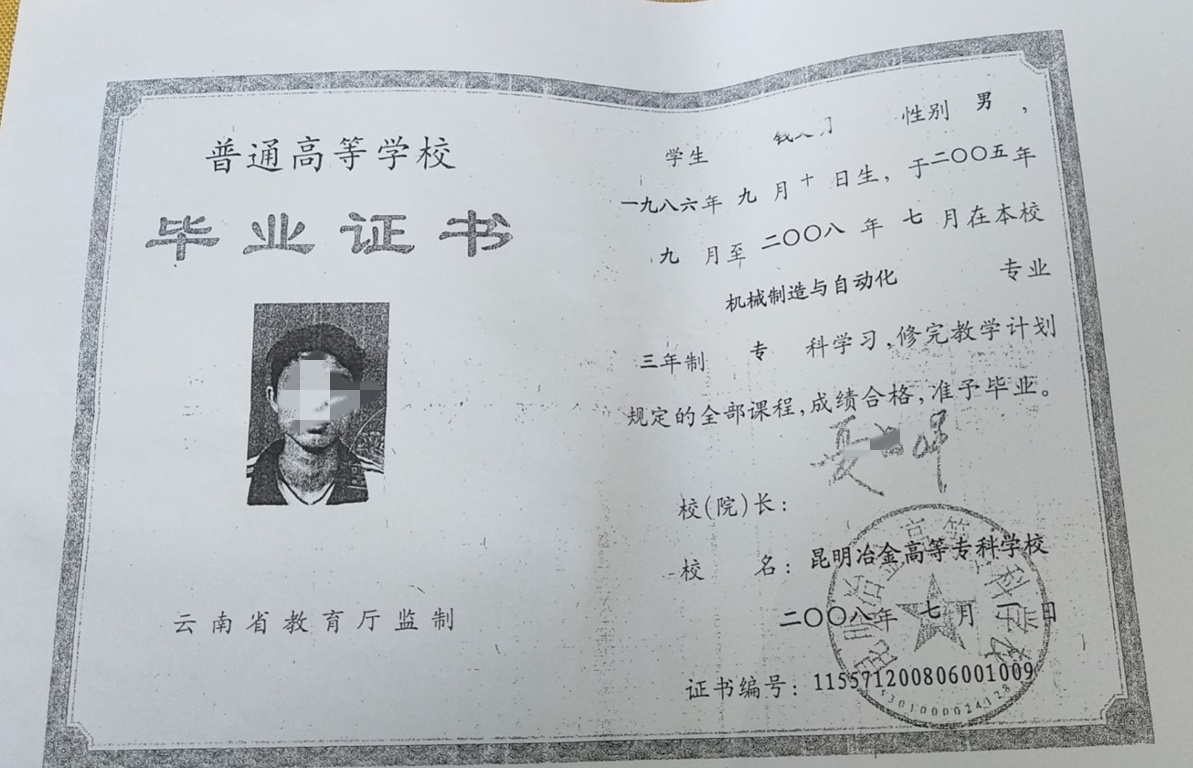 普通高等学校
毕业证书
云南省教育厅监制
学生 性别 男,
一九八六年 九 月 十 日生,于二〇〇五年
九 月至 二〇〇八 年 七 月在本校
机械制造与自动化 专业
三年制 专 科学习,修完教学计划
规定的全部课程,成绩合格,准予毕业。
校(院)长:
校 名: 昆明冶金高等专科学校
二〇〇八年 七 月 日
证书编号: 115571200806001009
5301000024128